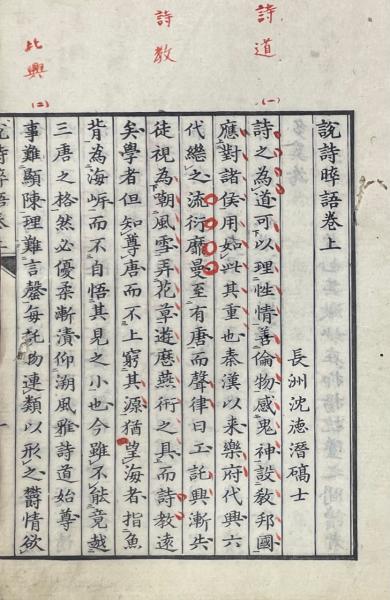 詩道
(一)
詩教
比興
(二)
說詩晬語卷上
長洲沈德潛碻士
詩之為道可以理性情善倫物感鬼神設教邦國
應對諸侯用如此其重也秦漢以來樂府代興六
代繼之流衍靡曼至有唐而聲律日工託興漸失
徒視為嘲風雪弄花草遊歴燕衎之具而詩教遠
矣學者但知尊唐而不上窮其源猶望海者指魚
背為海岸而不自悟其見之小也今雖不能竟越
三唐之格然必優柔漸漬仰溯風雅詩道始尊
事難顯陳理難言罄每託物連類以形之鬱情欲
說詩晬語卷上
一